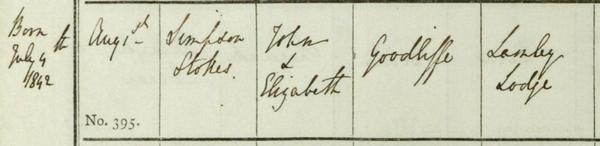 Born
July 4th
1842
Augt 1st
Simpson
Stokes.
John
&
Elizabeth
Goodliffe
Lambley
Lodge
No. 395.